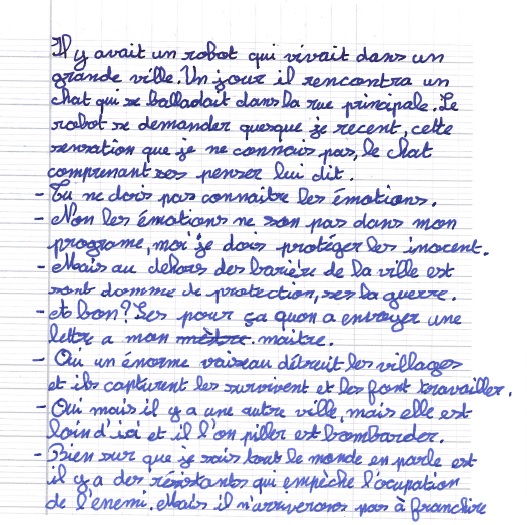 Il y avait un robot qui vivait dans un
grande ville. Un jour il rencontra un
chat qui se balladait dans la rue principale. Le
robot se demander quesque je recent, cette
sensation que je ne connais pas, le chat
comprenant ses penser lui dit.
- Tu ne dois pas connaitre les émotions.
- Non les émotions ne son pas dans mon
programe, moi je dois protéger les inocent.
- Mais au dehors des barière de la ville est
sont domme de protection, ses la guerre.
- et bon? Ses pour ça quon a envoyer une
lettre a mon maitre.
- Oui un énorme vaiseau détruit les villages
et ils capturent les survivent et les font travailler.
- Oui mais il y a une autre ville, mais elle est
loin d'ici et il l'on piller est bombarder.
- Bien sur que je sais tout le monde en parle est
il y a des résistants qui empèche l'ocupation
de l'enemi. Mais il n'arriverons pas à franchire